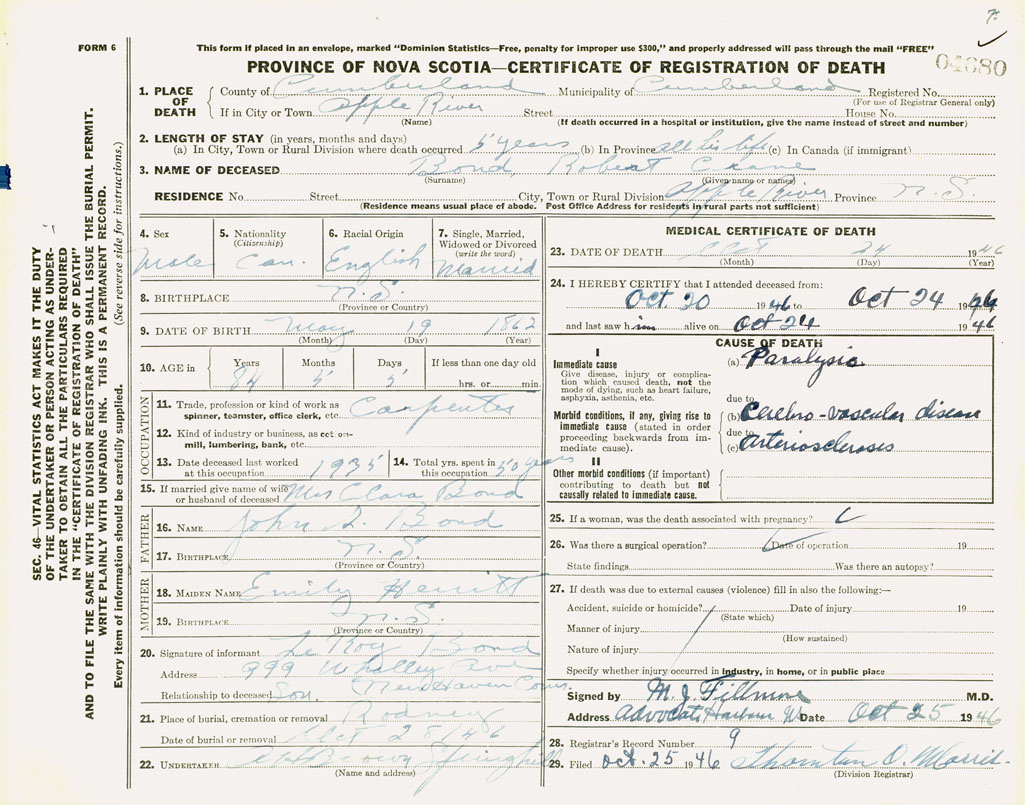 FORM 6
This form if placed in an envelope, marked "Dominion Statistics—Free, penalty for improper use $300," and properly addressed will pass through the mail "FREE"
PROVINCE OF NOVA SCOTIA—CERTIFICATE OF REGISTRATION OF DEATH
04680
SEC. 46—VITAL STATISTICS ACT MAKES IT THE DUTY
OF THE UNDERTAKER OR PERSON ACTING AS UNDER-
TAKER TO OBTAIN ALL THE PARTICULARS REQUIRED
IN THE "CERTIFICATE OF REGISTRATION OF DEATH"
AND TO FILE THE SAME WITH THE DIVISION REGISTRAR WHO SHALL ISSUE THE BURIAL PERMIT.
WRITE PLAINLY WITH UNFADING INK. THIS IS A PERMANENT RECORD.
Every item of information should be carefully supplied. (See reverse side for instructions.)
1. PLACE OF DEATH
County of Cumberland Municipality of Cumberland Registered No.
(For use of Registrar General only)
If in City or Town Apple River Street House No.
(Name) (If death occurred in a hospital or institution, give the name instead of street and number)
2. LENGTH OF STAY (in years, months and days)
(a) In City, Town or Rural Division where death occurred 5 years (b) In Province all his life (c) In Canada (if immigrant)
3. NAME OF DECEASED Bond, Robert Crane
(Surname) (Given name or names)
RESIDENCE No. Street City, Town or Rural Division Apple River Province N.S.
(Residence means usual place of abode. Post Office Address for residents in rural parts not sufficient)
4. Sex
Male
5. Nationality
(Citizenship)
Can.
6. Racial Origin
English
7. Single, Married,
Widowed or Divorced
(write the word)
Married
8. BIRTHPLACE N.S.
(Province or Country)
9. DATE OF BIRTH May 19 1862
(Month) (Day) (Year)
10. AGE in
Years Months Days If less than one day old
84 5 5 hrs. or min.
OCCUPATION
11. Trade, profession or kind of work as
spinner, teamster, office clerk, etc. Carpenter
12. Kind of industry or business, as cotton-
mill, lumbering, bank, etc.
13. Date deceased last worked
at this occupation 1935
14. Total yrs. spent in
this occupation 50 years
15. If married give name of wife
or husband of deceased Mrs Clara Bond
FATHER
16. NAME John I. Bond
17. BIRTHPLACE N.S.
(Province or Country)
MOTHER
18. MAIDEN NAME Emily
19. BIRTHPLACE N.S.
(Province or Country)
20. Signature of informant Le Roy Bond
Address 999 Whalley Ave
New Haven Conn
Relationship to deceased Son
21. Place of burial, cremation or removal Rodney
Date of burial or removal Oct 28/46
22. UNDERTAKER
(Name and address)
MEDICAL CERTIFICATE OF DEATH
23. DATE OF DEATH Oct 24 1946
(Month) (Day) (Year)
24. I HEREBY CERTIFY that I attended deceased from:
Oct. 20 1946 to Oct 24 1946
and last saw him alive on Oct 24 1946
CAUSE OF DEATH
I
Immediate cause
Give disease, injury or complica-
tion which caused death, not the
mode of dying, such as heart failure,
asphyxia, asthenia, etc.
(a) Paralysis
due to
Morbid conditions, if any, giving rise to
immediate cause (stated in order
proceeding backwards from im-
mediate cause).
(b) Cerebro-vascular disease
due to
(c) Arterioscleroses
II
Other morbid conditions (if important)
contributing to death but not
causally related to immediate cause.
25. If a woman, was the death associated with pregnancy?
26. Was there a surgical operation? Date of operation 19
State findings Was there an autopsy?
27. If death was due to external causes (violence) fill in also the following:—
Accident, suicide or homicide? Date of injury 19
(State which)
Manner of injury
(How sustained)
Nature of injury
Specify whether injury occurred in Industry, in home, or in public place
Signed by M. J. Fillmore M.D.
Address Advocate Harbour NS Date Oct 25 1946
28. Registrar's Record Number 9
29. Filed Oct. 25 1946 Thornton O. Morris
(Division Registrar)